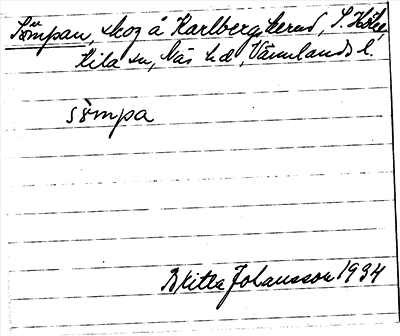 Sömpan, skog å Karlbergskerud, S.
Kila sn, Näs hd, Värmlands l.
sömpa
Britta Johansson 1934